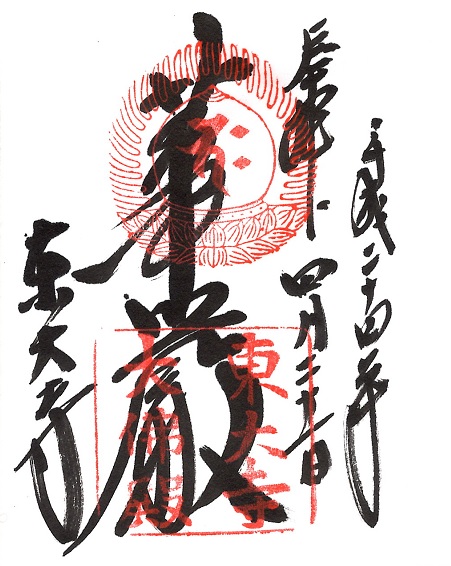 平成二十四年
奉拝 四月二十五日
華厳
東大寺
東大寺
大佛殿